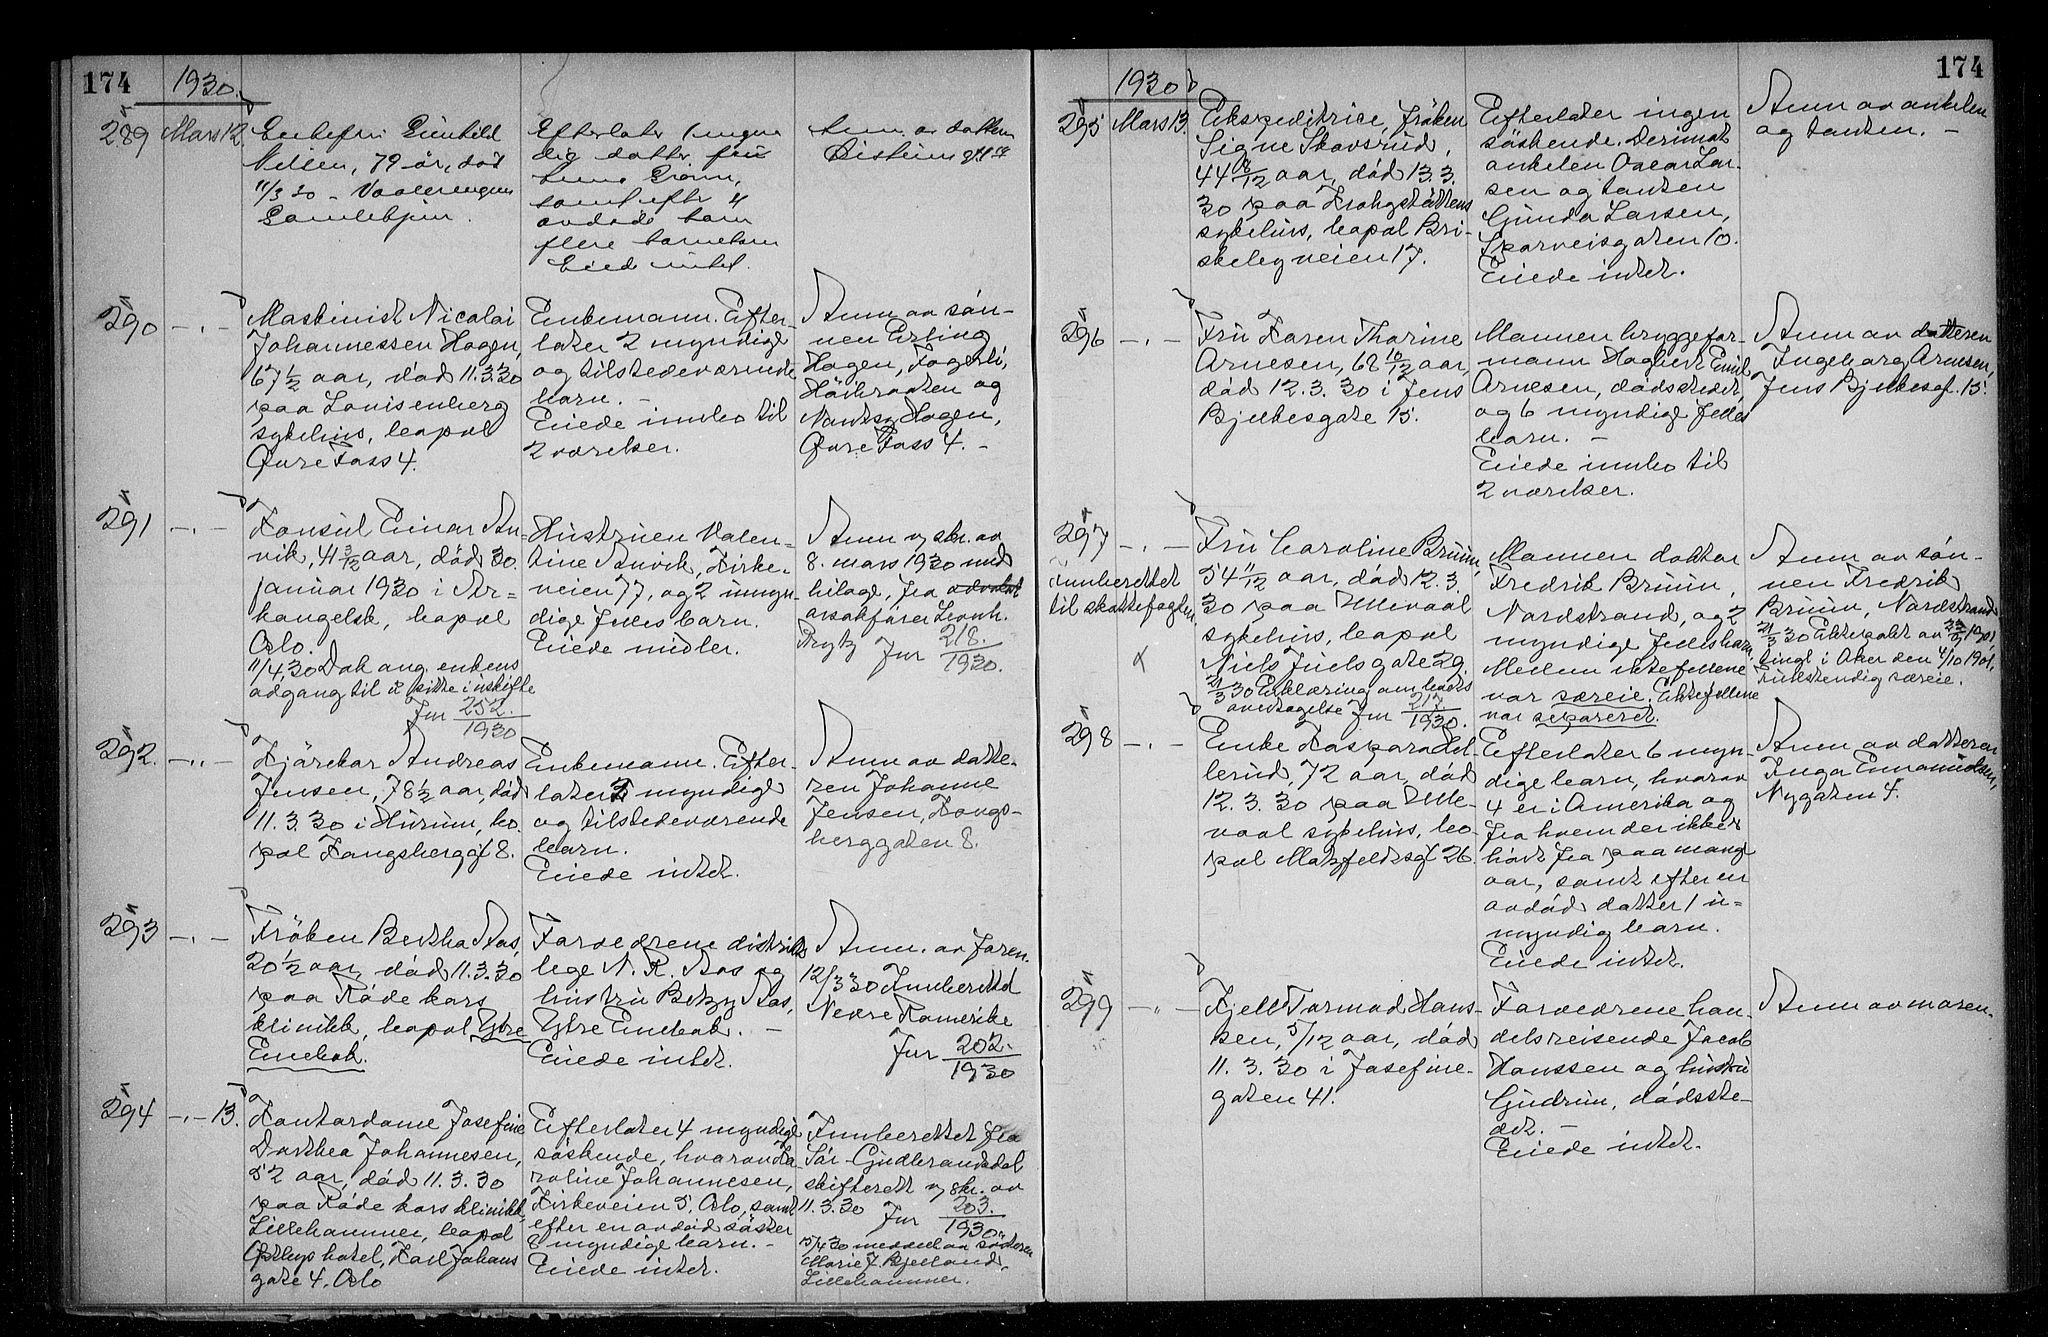 174
1930.
289 Mars 12.
Enkefru Gunhild
Nilsen, 79 år, död
11/3 30 - Vaalerengens
Gamlehjem.
Efterlater 1 myn-
dig datter, fru
Grönn,
samt efter 4
avdöde barn
flere barnebarn
Eiede intet.
Anm. av datteren
290 -"-
Maskinist Nicolai
Johannessen Hagen,
67 1/2 aar, död 11.3.30
paa Lovisenberg
sykehus, bopal
Øvre Foss 4.
Enkemann. Efter-
later 2 myndige
og tilstedeværende
barn. -
Eiede innbo til
2 værelser.
Anm av sön-
nen Erling
Hagen, Fagerli,
Höibraaten og
Hagen,
Øvre Foss 4. -
291 -"-
Konsul Einar An-
vik, 41 3/12 aar, död 30.
januar 1930 i Ar-
kangelsk, bopal
Oslo.
11/4.30 Dok ang. enkens
adgang til å sitte i uskifte
Jnr 252./1930
Hustruen Valen-
tine Anvik, Kirke-
veien 77, og 2 umyn-
dige felles barn.
Eiede midler.
Anm v skr. av
8. mars 1930 med
bilage, fra advokat
orsakförer Leonh.
Jnr 218./1930.
292. -"-
Kjörekar Andreas
Jensen, 78 1/2 aar, död
11.3.30 i Hurum, bo-
pal Kongsberggt 8.
Enkemann. Efter-
later 5 myndige
og tilstedeværende
barn.
Eiede intet.
Anm av datte-
ren Johanne
Jensen, Kongs-
berggaten 8.
293 -"-
Fröken Bertha Aas,
20 1/2 aar, död 11.3.30
paa Röde kors
klinikk, bopal Ytre
Enebak.
Foreldrene distrikts
lege N. R. Aas og
hustru Betzy Aas,
Ytre Enebak. -
Eiede intet.
Anm. av faren.
12/3 30 Innberettet
Nedre Romerike
Jnr 202./1930
294 -"- 13.
Kontordame Josefine
Dorthea Johannesen,
52 aar, död 11.3.30
paa Röde kors klinikk,
Lillehammer, bopal
hotel, Karl Johans
gate 4, Oslo
Efterlater 4 myndige
söskende, hvorav Ka
roline Johannesen,
Kirkeveien 5, Oslo, samt
efter en avdöd söster
2 myndige barn. -
Eiede intet.
Innberettet fra
Sör-Gudbrandsdal
skifterett v skr. av
11.3.30 Jnr 203./1930.
15/4 30 meddelt av sösteren
Marie J. Bjelland,
Lillehammer.
174
1930
295 Mars 13.
Ekspeditrice, fröken
Signe Skovsrud,
44 aar, död 13.3.
30 paa Krohgstöttens
sykehus, bopal Bri-
skebyveien 17.
Efterlater ingen
söskende. Derimot
onkelen Oscar Lar-
sen og tanten
Gunda Larsen,
Sporveisgaten 10.
Eiede intet.
Anm av onkelen
og tanten. -
296 -"-
Fru Karen Thorine
Arnesen, 68 10/12 aar,
död 12.3.30 i Jens
Bjelkesgate 15.
Mannen bryggefor-
mann Hagbert Emil
Arnesen, dödsstedet,
og 6 myndige felles
barn. -
Eiede innbo til
2 værelser.
Anm av datteren
Ingeborg Arnesen,
Jens Bjelkesgt. 15.
297 -"-
Innberettet
til skattefogden.
Fru Caroline Bruun,
54 11/12 aar, död 12.3.
30 paa Ullevaal
sykehus, bopal
Niels Juelsgate 29.
21/3 30 Erklæring om boets
overtagelse Jnr 217/1930.
Mannen doktor
Fredrik Bruun,
Nordstrand, og 2
myndige felles barn.
Mellem ektefellene
var særeie. Ektefellene
var separeret.
Anm av sön-
nen Fredrik
Bruun, Nordstrand
21/3 30 Ektepakt av
tingl i Aker den 4/10 1901,
fullstendig særeie.
298 -"-
Enke Kaspara Lil-
lerud, 72 aar, död
12.3.30 paa Ulle-
vaal sykehus, bo-
pal Motzfeldtsgt 26.
Efterlater 6 myn-
dige barn, hvorav
4 er i Amerika og
fra hvem der ikke er
hört fra paa mange
aar, samt efter en
avdöd datter 1 u-
myndig barn.
Eiede intet.
Anm av datteren
Inga Emanuelsen,
Nygaten 4.
299 -"-
Kjell Tormod Hans-
sen, 5/12 aar, död
11.3.30 i Josefine-
gaten 41.
Foreldrene han-
delsreisende Jacob
Hanssen og hustru
Gudrun, dödsste-
det. -
Eiede intet.
Anm av moren.